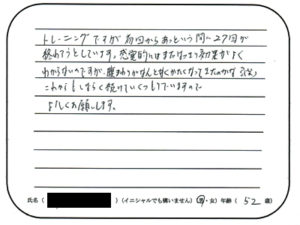 トレーニングですが初回からあっという間に27回が
終わろうとしています。感覚的にはまだなっまり効果がよく
わからないのですが、腰まわりがなんとなくかたくなってきたのかな(笑)
これからもしばらく続けていくつもりでいますので
よろしくお願いします。
氏名( )(イニシャルでも構いません)(男・女)年齢(52歳)